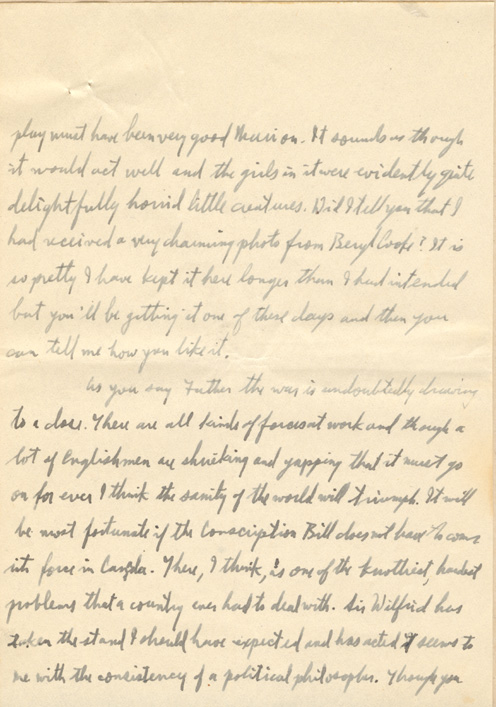 play must have been very good Marion. It sounds as though
it would act well and the girls in it were evidently quite
delightfully horrid little creatures. Did I tell you that I
had received a very charming photo from Beryl Cooke? It is
so pretty I have kept it here longer than I had intended
but you'll be getting it one of these days and then you
can tell me how you like it.
As you say Father the war is undoubtedly drawing
to a close. There are all kinds of forces at work and though a
lot of Englishmen are shrieking and yapping that it must go
on for ever I think the sanity of the world will triumph. It will
be most fortunate if the Conscription Bill does not have to come
into force in Canada. There, I think, is one of the knottiest, hardest
problems that a country ever had to deal with. Sir Wilfrid has
taken the stand I should have expected and has acted it seems to
me with the consistency of a political philosopher. Though you